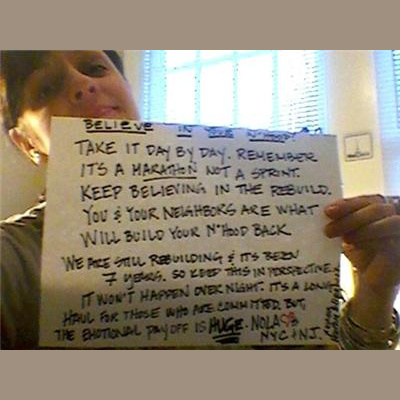 BELIEVE IN YOUR N'HOOD!
TAKE IT DAY BY DAY. REMEMBER
IT'S A MARATHON NOT A SPRINT.
KEEP BELIEVING IN THE REBUILD.
YOU & YOUR NEIGHBORS ARE WHAT
WILL BUILD YOUR N'HOOD BACK.
WE ARE STILL REBUILDING & IT'S BEEN
7 YEARS. SO KEEP THIS IN PERSPECTIVE.
IT WON'T HAPPEN OVER NIGHT. IT'S A LONG
HAUL FOR THOSE WHO ARE COMMITTED. BUT,
THE EMOTIONAL PAY OFF IS HUGE. NOLA ♡'S
NYC + NJ.